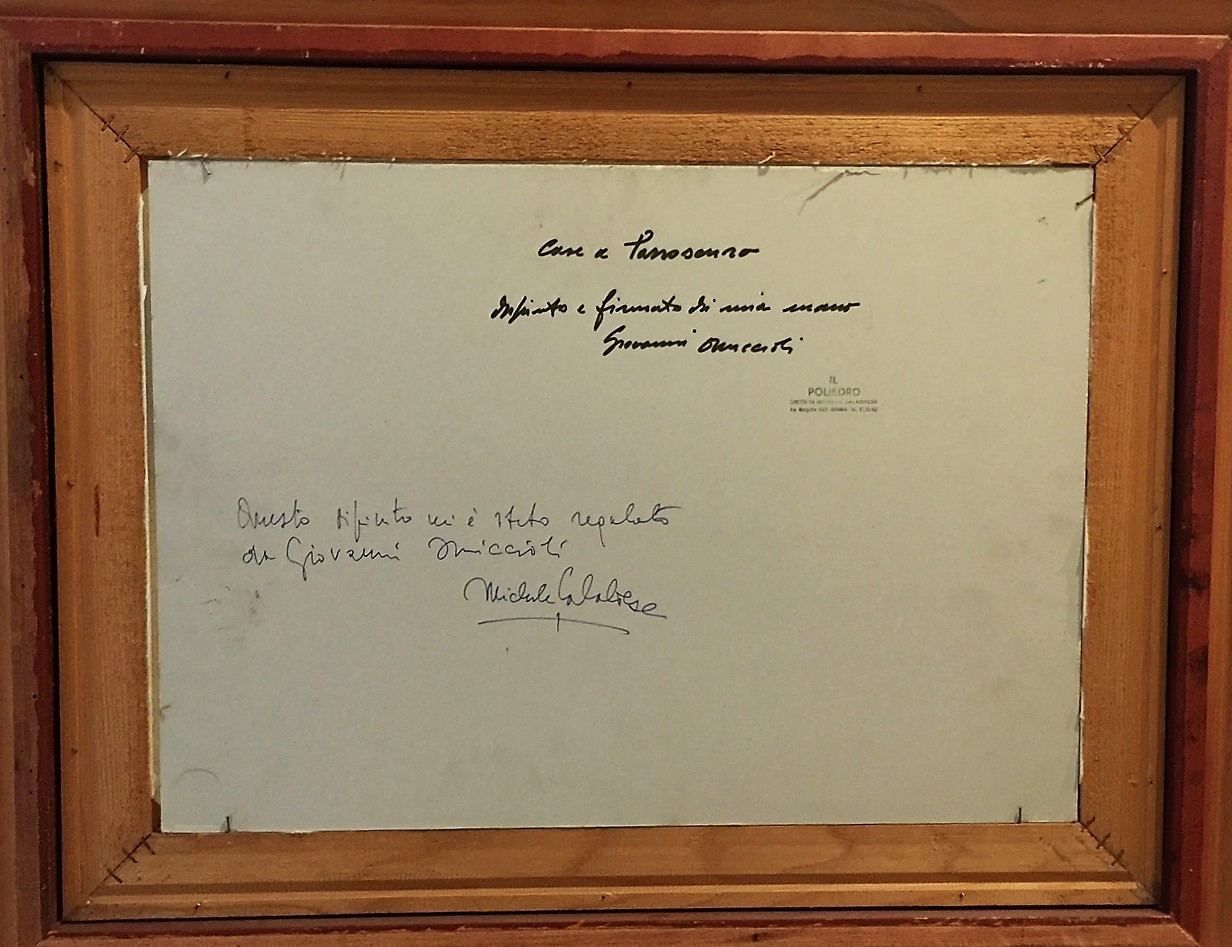 Case a
dipinto e firmato di mia mano
Giovanni Omiccioli
IL
POLIEDRO
Questo dipinto mi è stato regalato
da Giovanni Omiccioli
Michele Calabrese